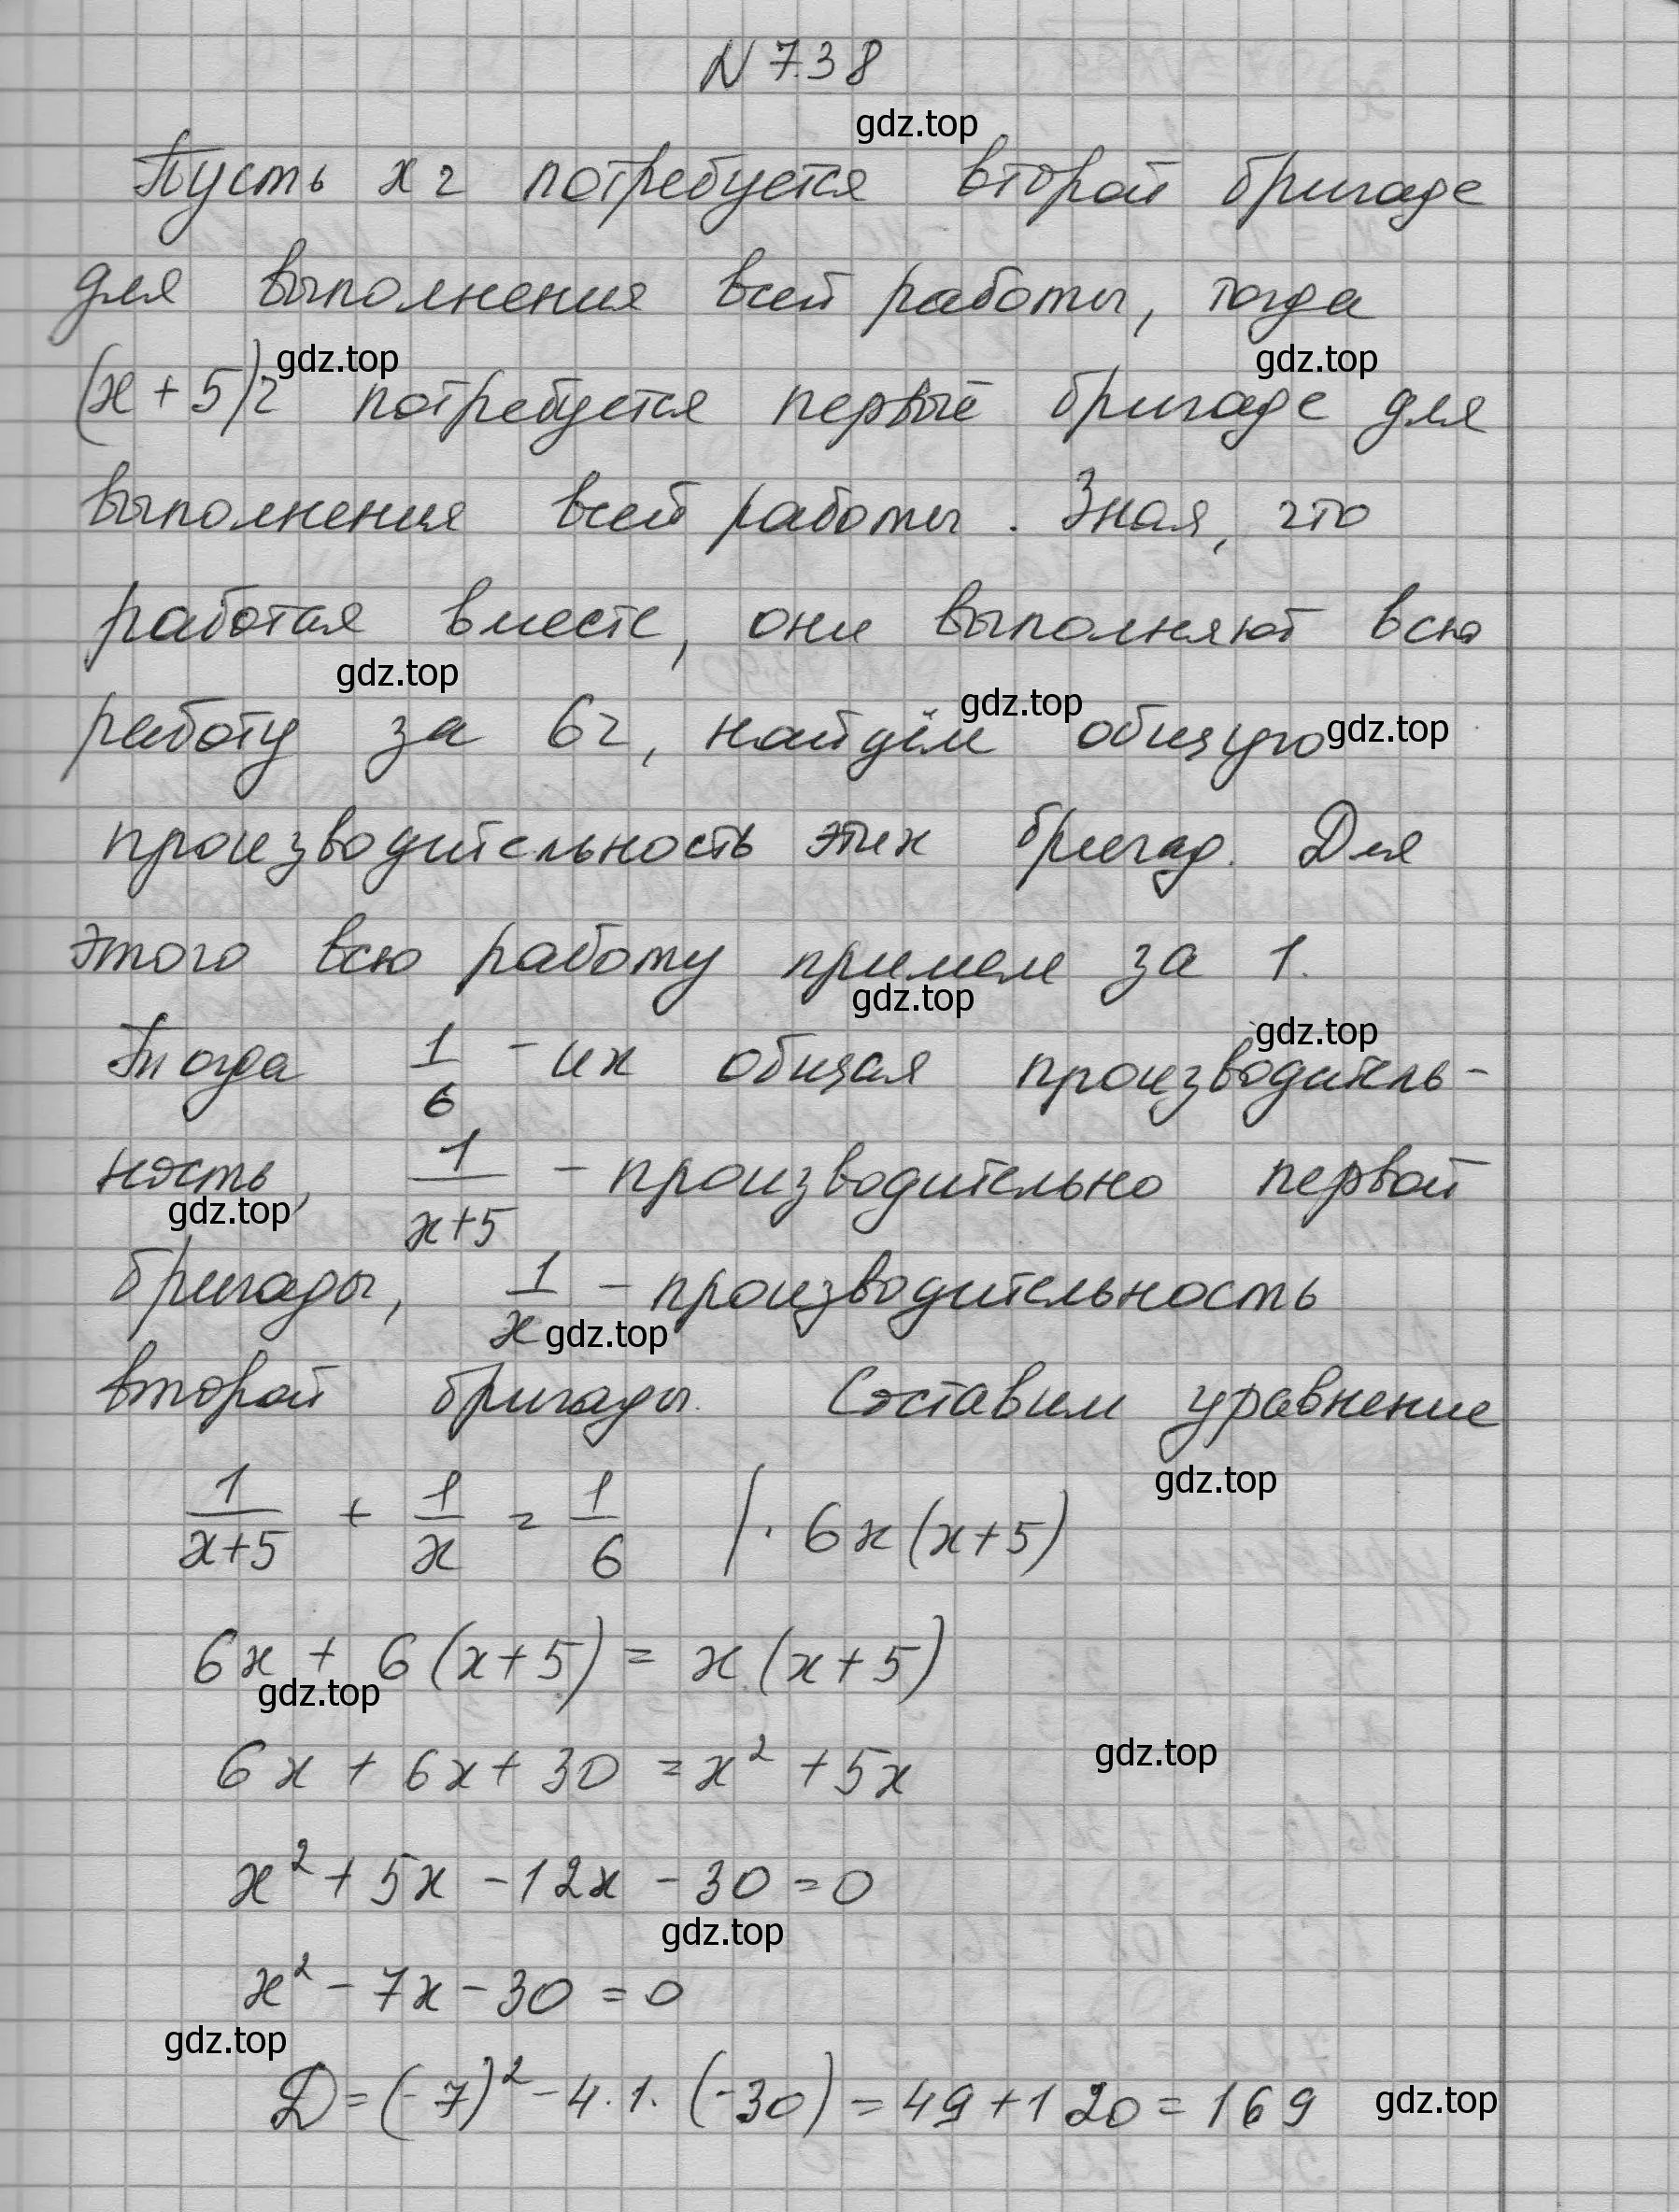 N 738
gdz.top
Пусть x ч потребуется второй бригаде
для выполнения всей работы, тогда
gdz.top gdz.top
(x + 5)ч потребуется первые бригаде для
выполнения всей работы. Зная, что
работая вместе, они выполняют всю
gdz.top gdz.top
работу за 6ч, найдём общую gdz.top
производительность этих бригад. Для
этого всю работу примем за 1.
gdz.top gdz.top
Тогда 1/6 - их общая производитель-
ность, 1/(x+5) - производительно первой
gdz.top
бригады, 1/x - производительность
gdz.top
второй бригады. Составим уравнение
gdz.top
1/(x+5) + 1/x = 1/6 | · 6x(x+5)
6x + 6(x+5) = x(x+5)
gdz.top
6x + 6x + 30 = x² + 5x gdz.top
x² + 5x - 12x - 30 = 0
gdz.top
x² - 7x - 30 = 0
gdz.top
D = (-7)² - 4·1·(-30) = 49 + 120 = 169 gdz.top